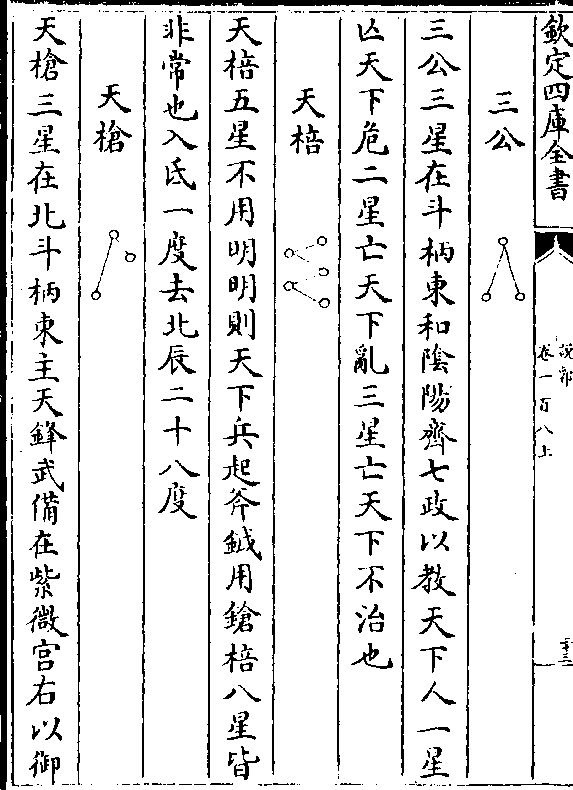 欽定四庫全書
說郛
卷一百八上
三公
三公三星在斗柄東和陰陽齊七政以教天下人一星
亾天下危二星亡天下亂三星亡天下不治也
天棓
天棓五星不用明明則天下兵起斧鉞用鎗棓八星皆
非常也入氐一度去北辰二十八度
天槍
天槍三星在北斗柄東主天鋒武備在紫微宫右以御